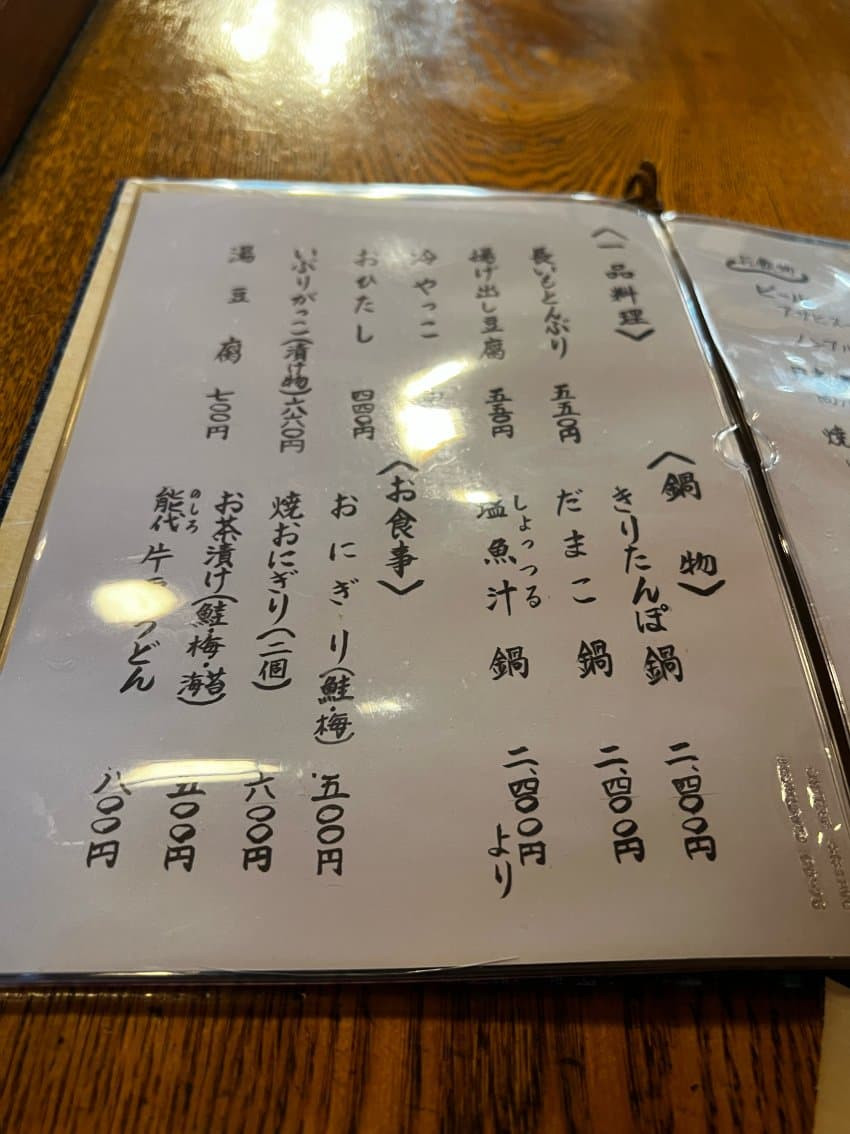 〈一品料理〉
長いもとんぶり 五五〇円
揚げ出し豆腐 五五〇円
冷やっこ
おひたし 四四〇円
いぶりがっこ(漬け物) 六六〇円
湯豆腐 七〇〇円
〈鍋物〉
きりたんぽ鍋 二、四〇〇円
だまこ鍋 二、四〇〇円
しょっつる
塩魚汁鍋 二、四〇〇円より
〈お食事〉
おにぎり(鮭・梅) 五〇〇円
焼おにぎり(二個) 六〇〇円
お茶漬け(鮭・梅・海苔) 五〇〇円
のしろ
能代 うどん 八〇〇円
お飲物
ビール